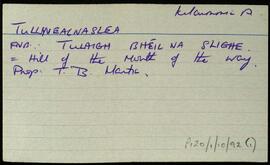 TULLYNEALNASLEA
TULAIGH BHÉIL NA SLIGHE.
= Hill of the Mouth of the Way.
Prop: T. B Martin.
P120/1/10/92(1)